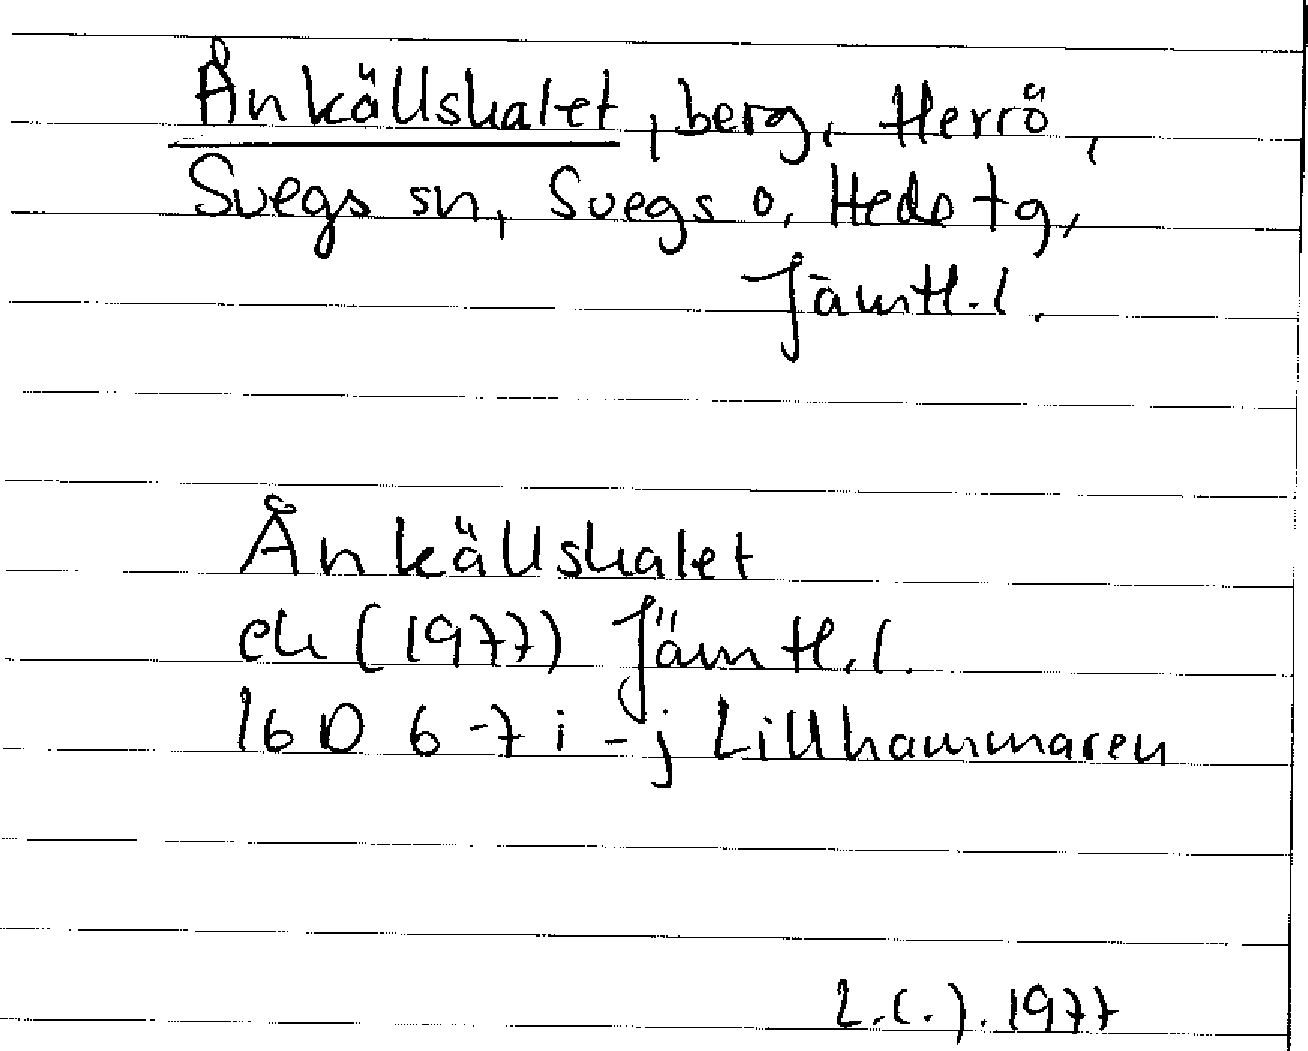 Ånkällskalet, berg, Herrö,
Svegs sn, Svegs o. Hede tg,
Jämtl. l.
Ånkällskalet
ek (1977) Jämtl. l.
16D 6-7 i-j Lillhammaren
L.C.J. 1977